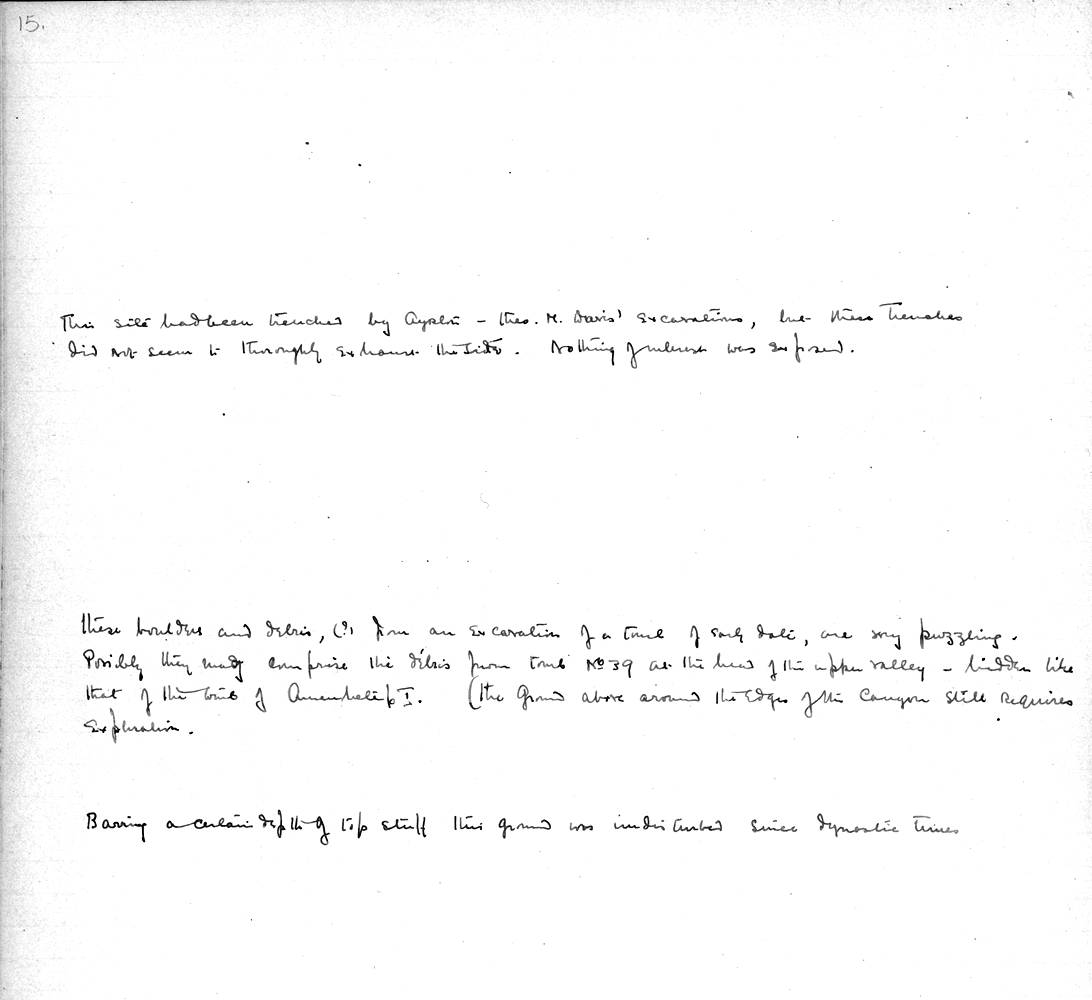 15.
This site had been trenched by Ayrton – Theo. M. Davis' excavations, but these trenches
did not seem to thoroughly exhaust the site. Nothing of interest was exposed.
These boulders and debris, (?) from an excavation of a tomb of early date, are very puzzling.
Possibly they may comprise the débris from tomb No 39 at the head of the upper valley – hidden like
that of the tomb of Amenhetep I. (The ground above around the edges of the canyon still requires
exploration.
Barring a certain depth of top stuff this ground was undisturbed since dynastic times